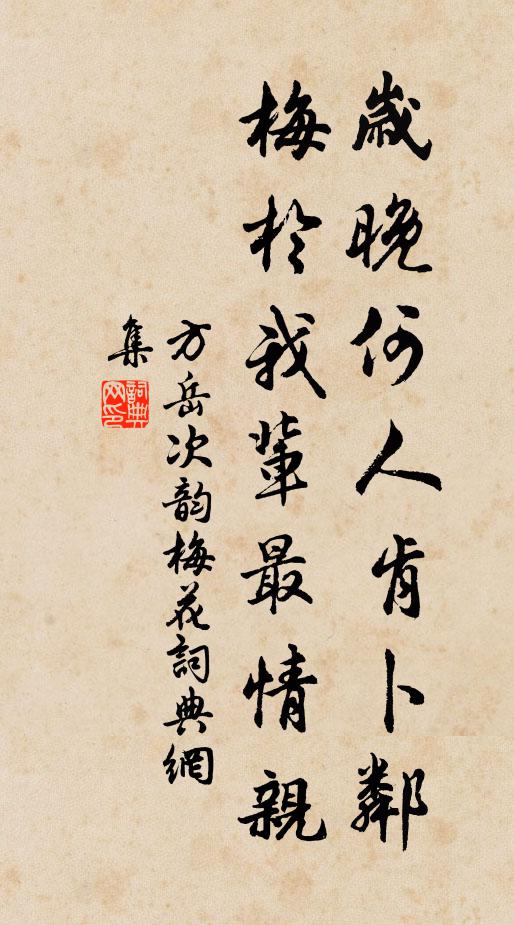 歲晚何人肯卜鄰
梅於我輩最情親
方岳次韵梅花詞典網
集
詞典网印